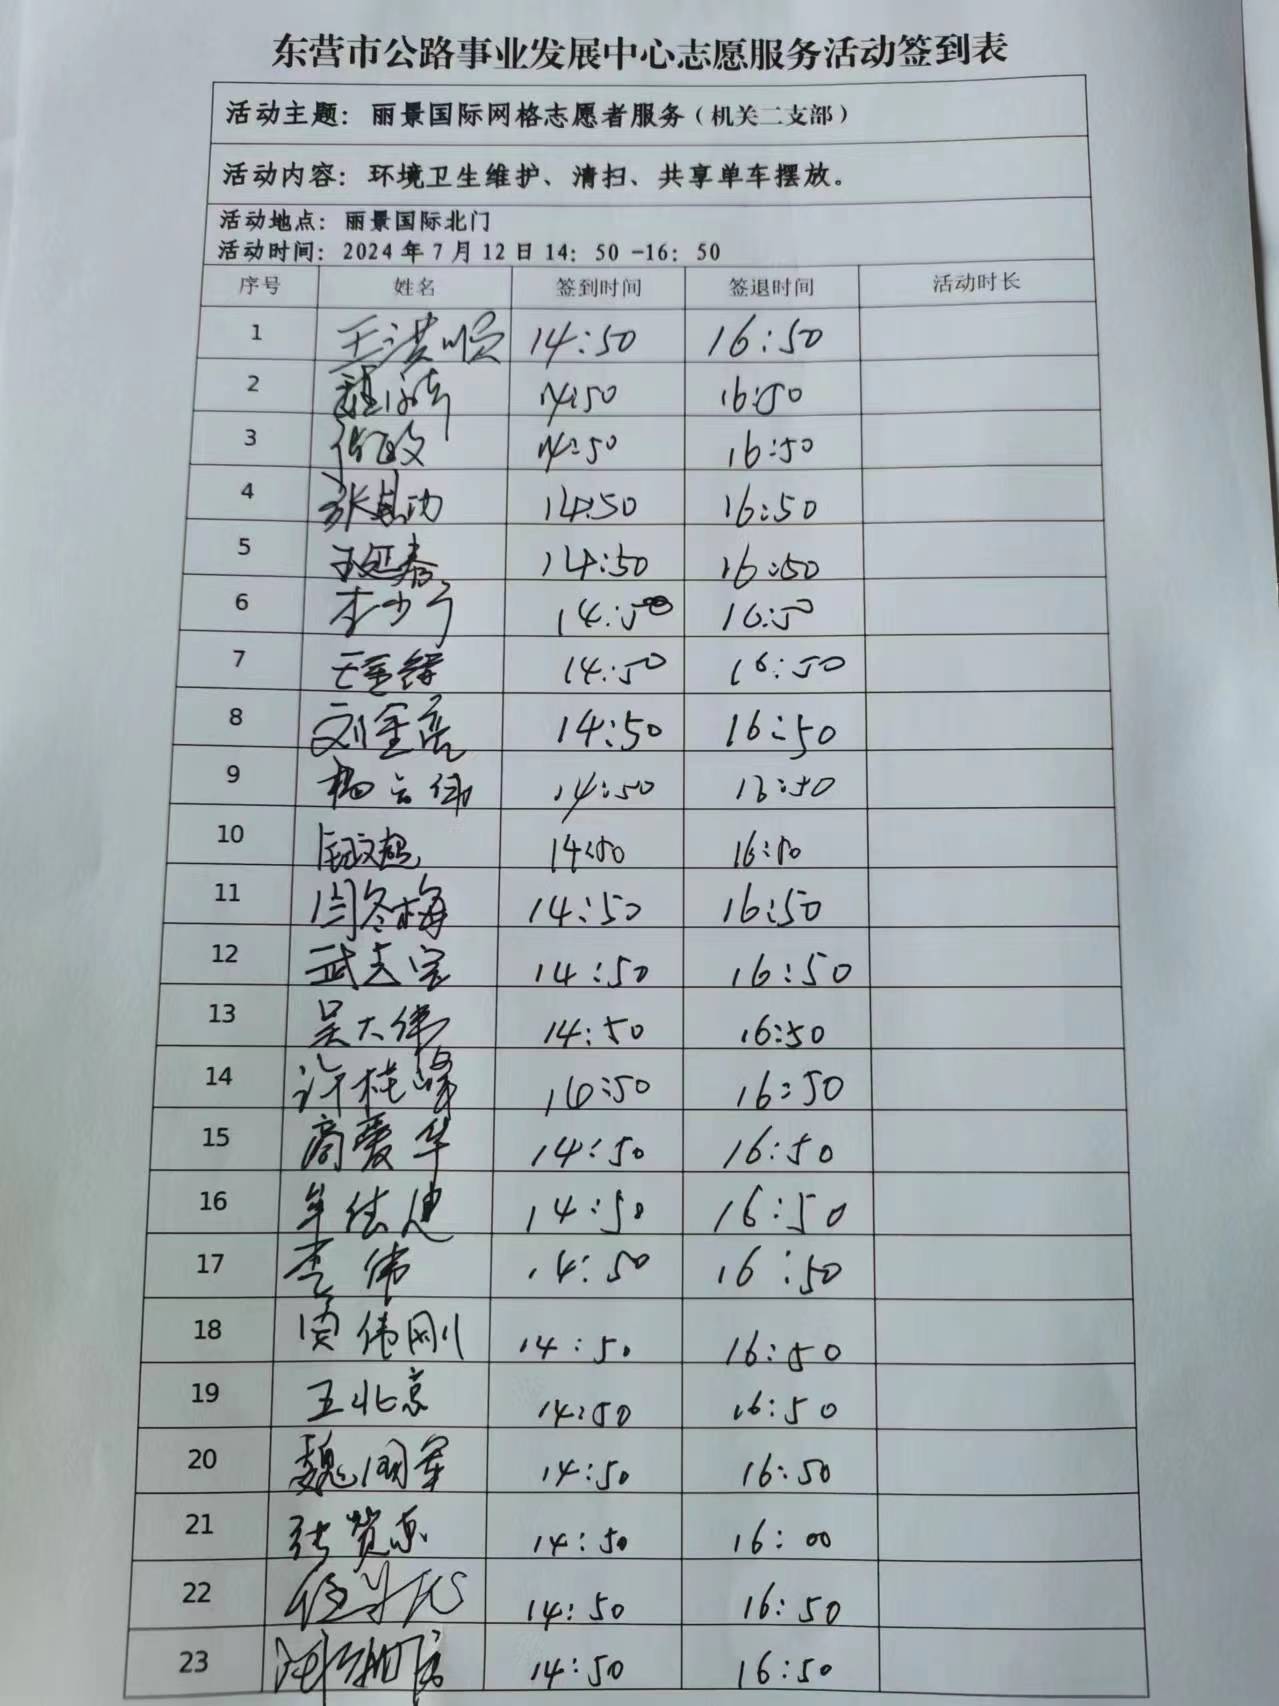 东营市公路事业发展中心志愿服务活动签到表
活动主题：丽景国际网格志愿者服务（机关二支部）
活动内容：环境卫生维护、清扫、共享单车摆放。
活动地点：丽景国际北门
活动时间：2024年7月12日14：50-16：50
序号 姓名 签到时间 签退时间 活动时长
1 王洪顺 14:50 16:50
2 14:50 16:50
3 14:50 16:50
4 14:50 16:50
5 王延春 14:50 16:50
6 李少 14:50 16:50
7 王 14:50 16:50
8 刘金亮 14:50 16:50
9 杨云伟 14:50 16:50
10 14:50 16:50
11 闫冬梅 14:50 16:50
12 武志宝 14:50 16:50
13 吴大伟 14:50 16:50
14 许桂峰 16:50 16:50
15 商爱华 14:50 16:50
16 牟佳 14:50 16:50
17 李伟 14:50 16:50
18 贾伟刚 14:50 16:50
19 王北京 14:50 16:50
20 魏国军 14:50 16:50
21 张 14:50 16:00
22 14:50 16:50
23 14:50 16:50